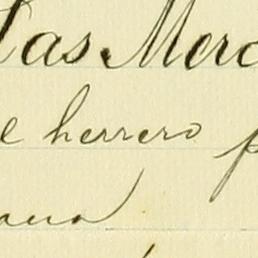 Las Merc
el herrero p
ana